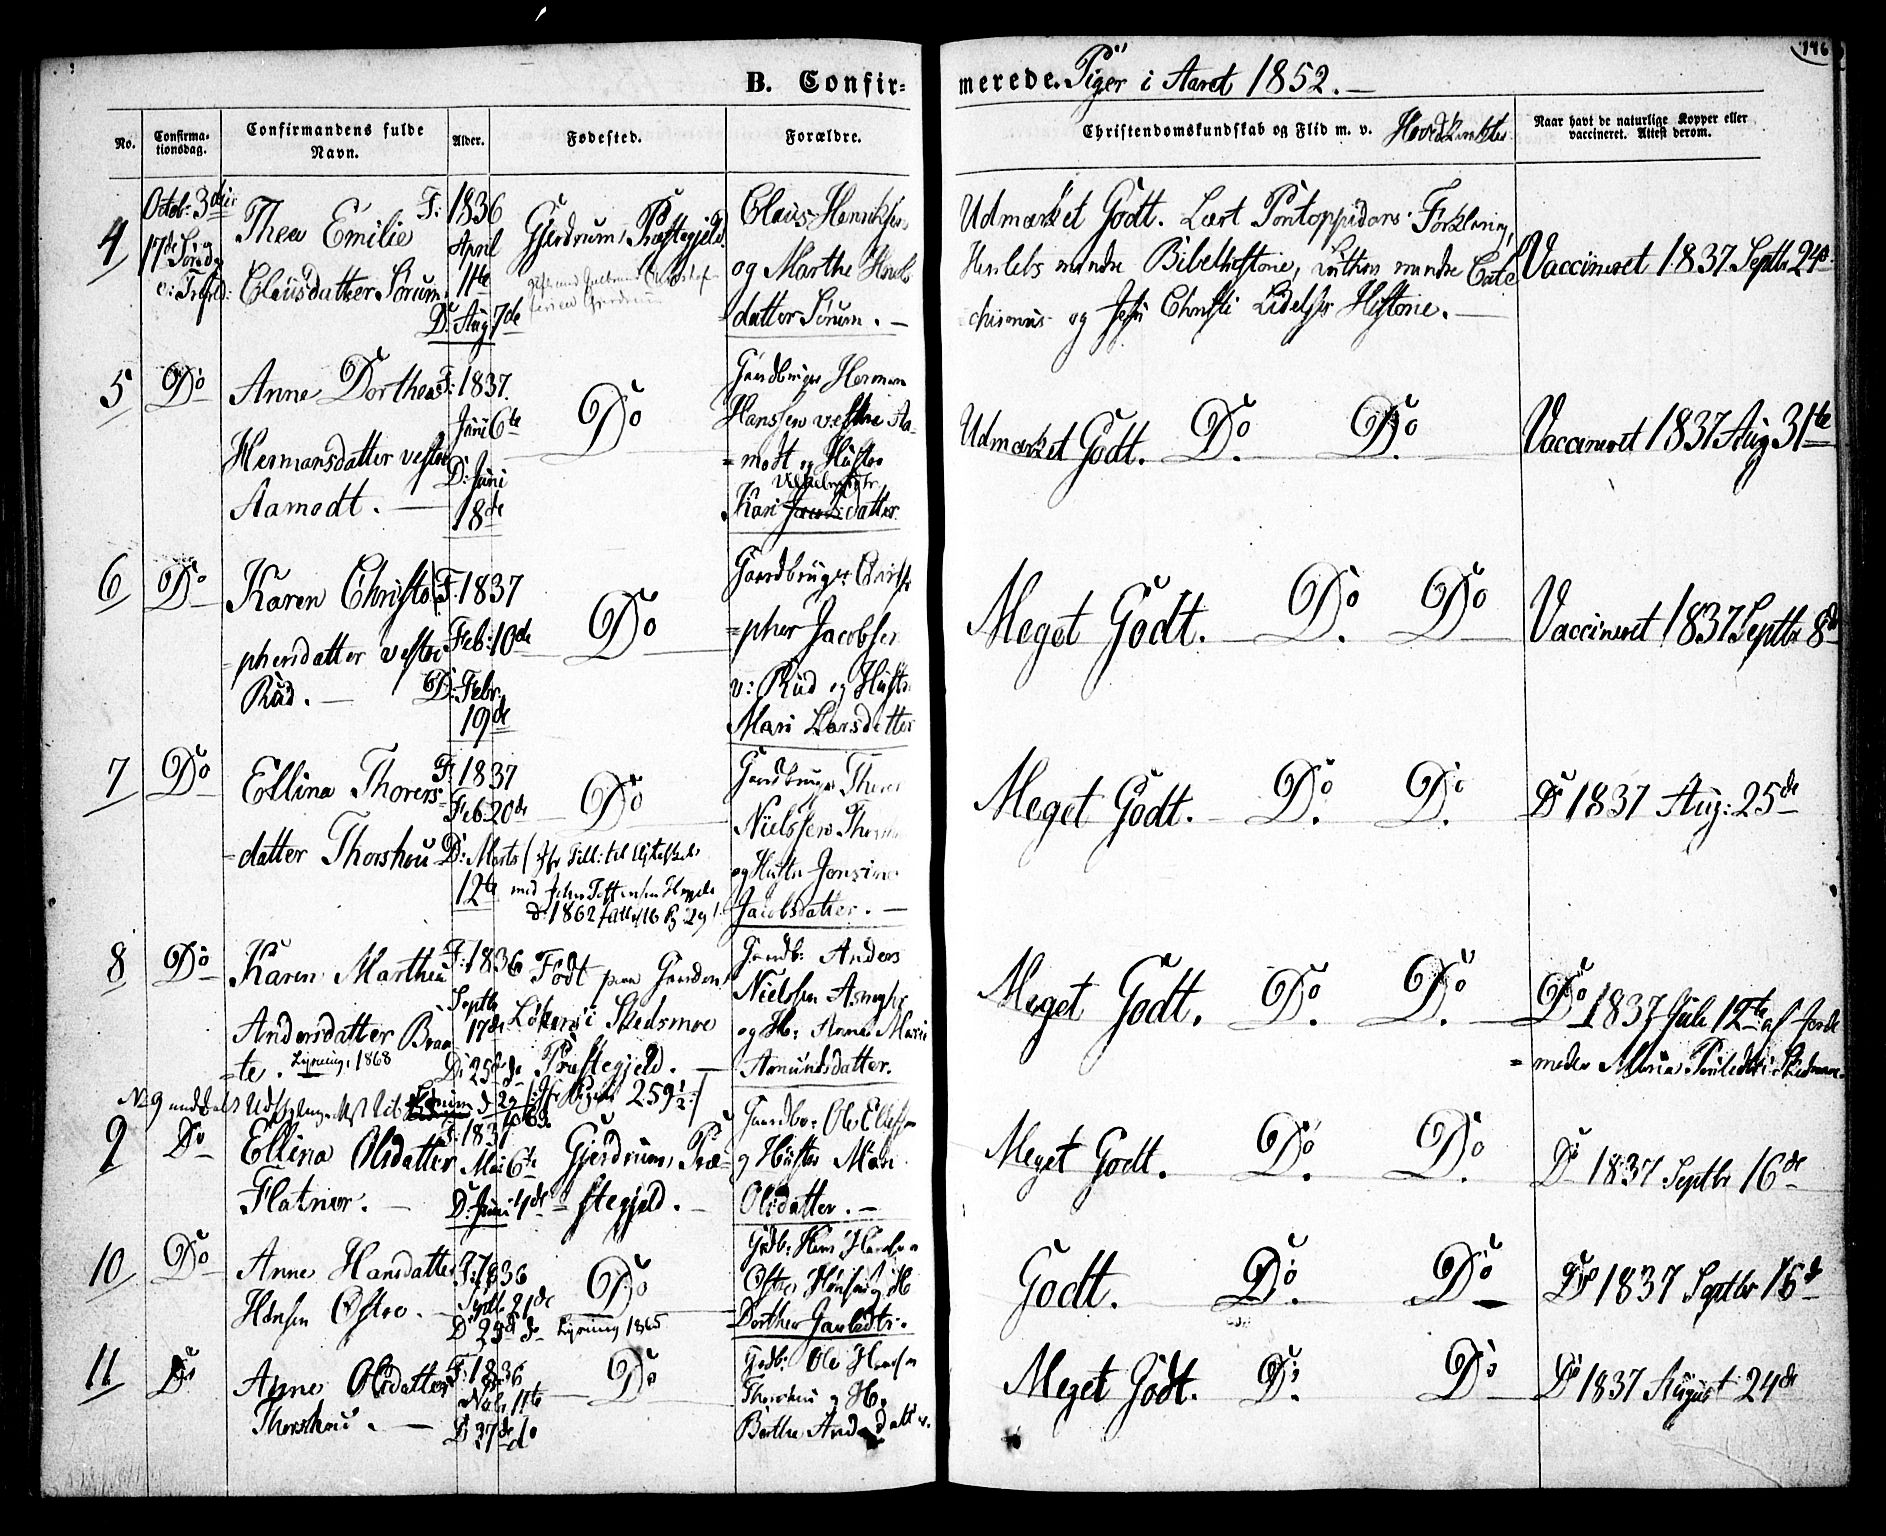 146
B. Confir= merede. Piger i Aaret 1852. —
No.
Confirma-
tionsdag.
Confirmandens fulde
Navn.
Alder.
Fødested.
Forældre.
Christendomskundskab og Flid m. v.
Naar havt de naturlige Kopper eller
vaccineret. Attest derom.
4
Octob: 3die
17de Søndg
e: Trefold:
Thea Emilie
Clausdatter Sørum
F: 1836
April
11te
D: Aug 7de
Gjerdrums Præstegjeld.
Claus Henriksen
og Marthe
datter Sørum. —
Udmærket Godt. Lært Pontoppidans Forklaring,
Herslebs mindre Bibelhistorie, Luthers mindre Cate
chismus og Jesu Christi Lidelses Historie. —
Vaccineret 1837 Septbr 24de
5
Do
Anne Dorthea
Hermansdatter vestre
Aamodt. —
F: 1837.
Juni 6te
D: Juni
18de
Do
Gaardbruger Herman
Hanssen vestre Aa-
=modt og Hustro
Kari datter.
Udmærket Godt. Do. Do.
Vaccineret 1837 Aug 31te
6
Do
Karen Christo
=phersdatter vestre
Rud. —
F. 1837
Feb: 10de
D: Febr.
19de
Do
Gaardbruger Christo
=pher Jacobsen
v: Rud og Hustro
Mari Larsdatter
Meget Godt. Do. Do
Vaccineret 1837 Septbr 8de
7
Do
Ellina Thorers
=datter Thorshou
F: 1837
Feb. 20de
D: Marts
12te
Do
d. 1862
Gaardbruger Thorer
Nielssen
og Hustr Jonsine
Jacobsdatter. —
Meget Godt. Do. Do.
Do 1837 Aug: 25de
8
Do
Karen Marthea
Andersdatter Braa
=te. 1868
F: 1836
Septbr
17de
D: 25de do
Født paa Gaarden
i Skedsmoe
Præstegjeld. —
Gaardb: Anders
Nielssen
og H: Anne Marie
Amundsdatter.
Meget Godt. Do. Do.
Do 1837 Juli 12te af Jorde
=moder Maria i Skedsmoe.
9
Do
Ellina Olsdatter
Flatner. —
F: 1837
Mai 6te
D: Juni 4de
Gjerdrums Præ=
=stegjeld. —
Gaardbr: Ole
og Hustro Mari
Olsdatter. —
Meget Godt. Do. Do.
Do 1837 Septbr 16de
10
Do
Anne Hansdatter
Hønsen Østre. —
F: 1836
Septbr 21de
D 29de do
Do
1865
Gdb: Hans
Østre Hønsen og H
Dorthea
Godt. Do. Do
Do 1837 Septbr 16de
11
Do
Anne Olsdatter
Thorshou. —
F: 1836
Novbr 11te
D 27de do
Do
Gdb: Ole Hansen
Thorshou og H.
Berthe
Meget Godt. Do. Do
Do 1837 August 24de